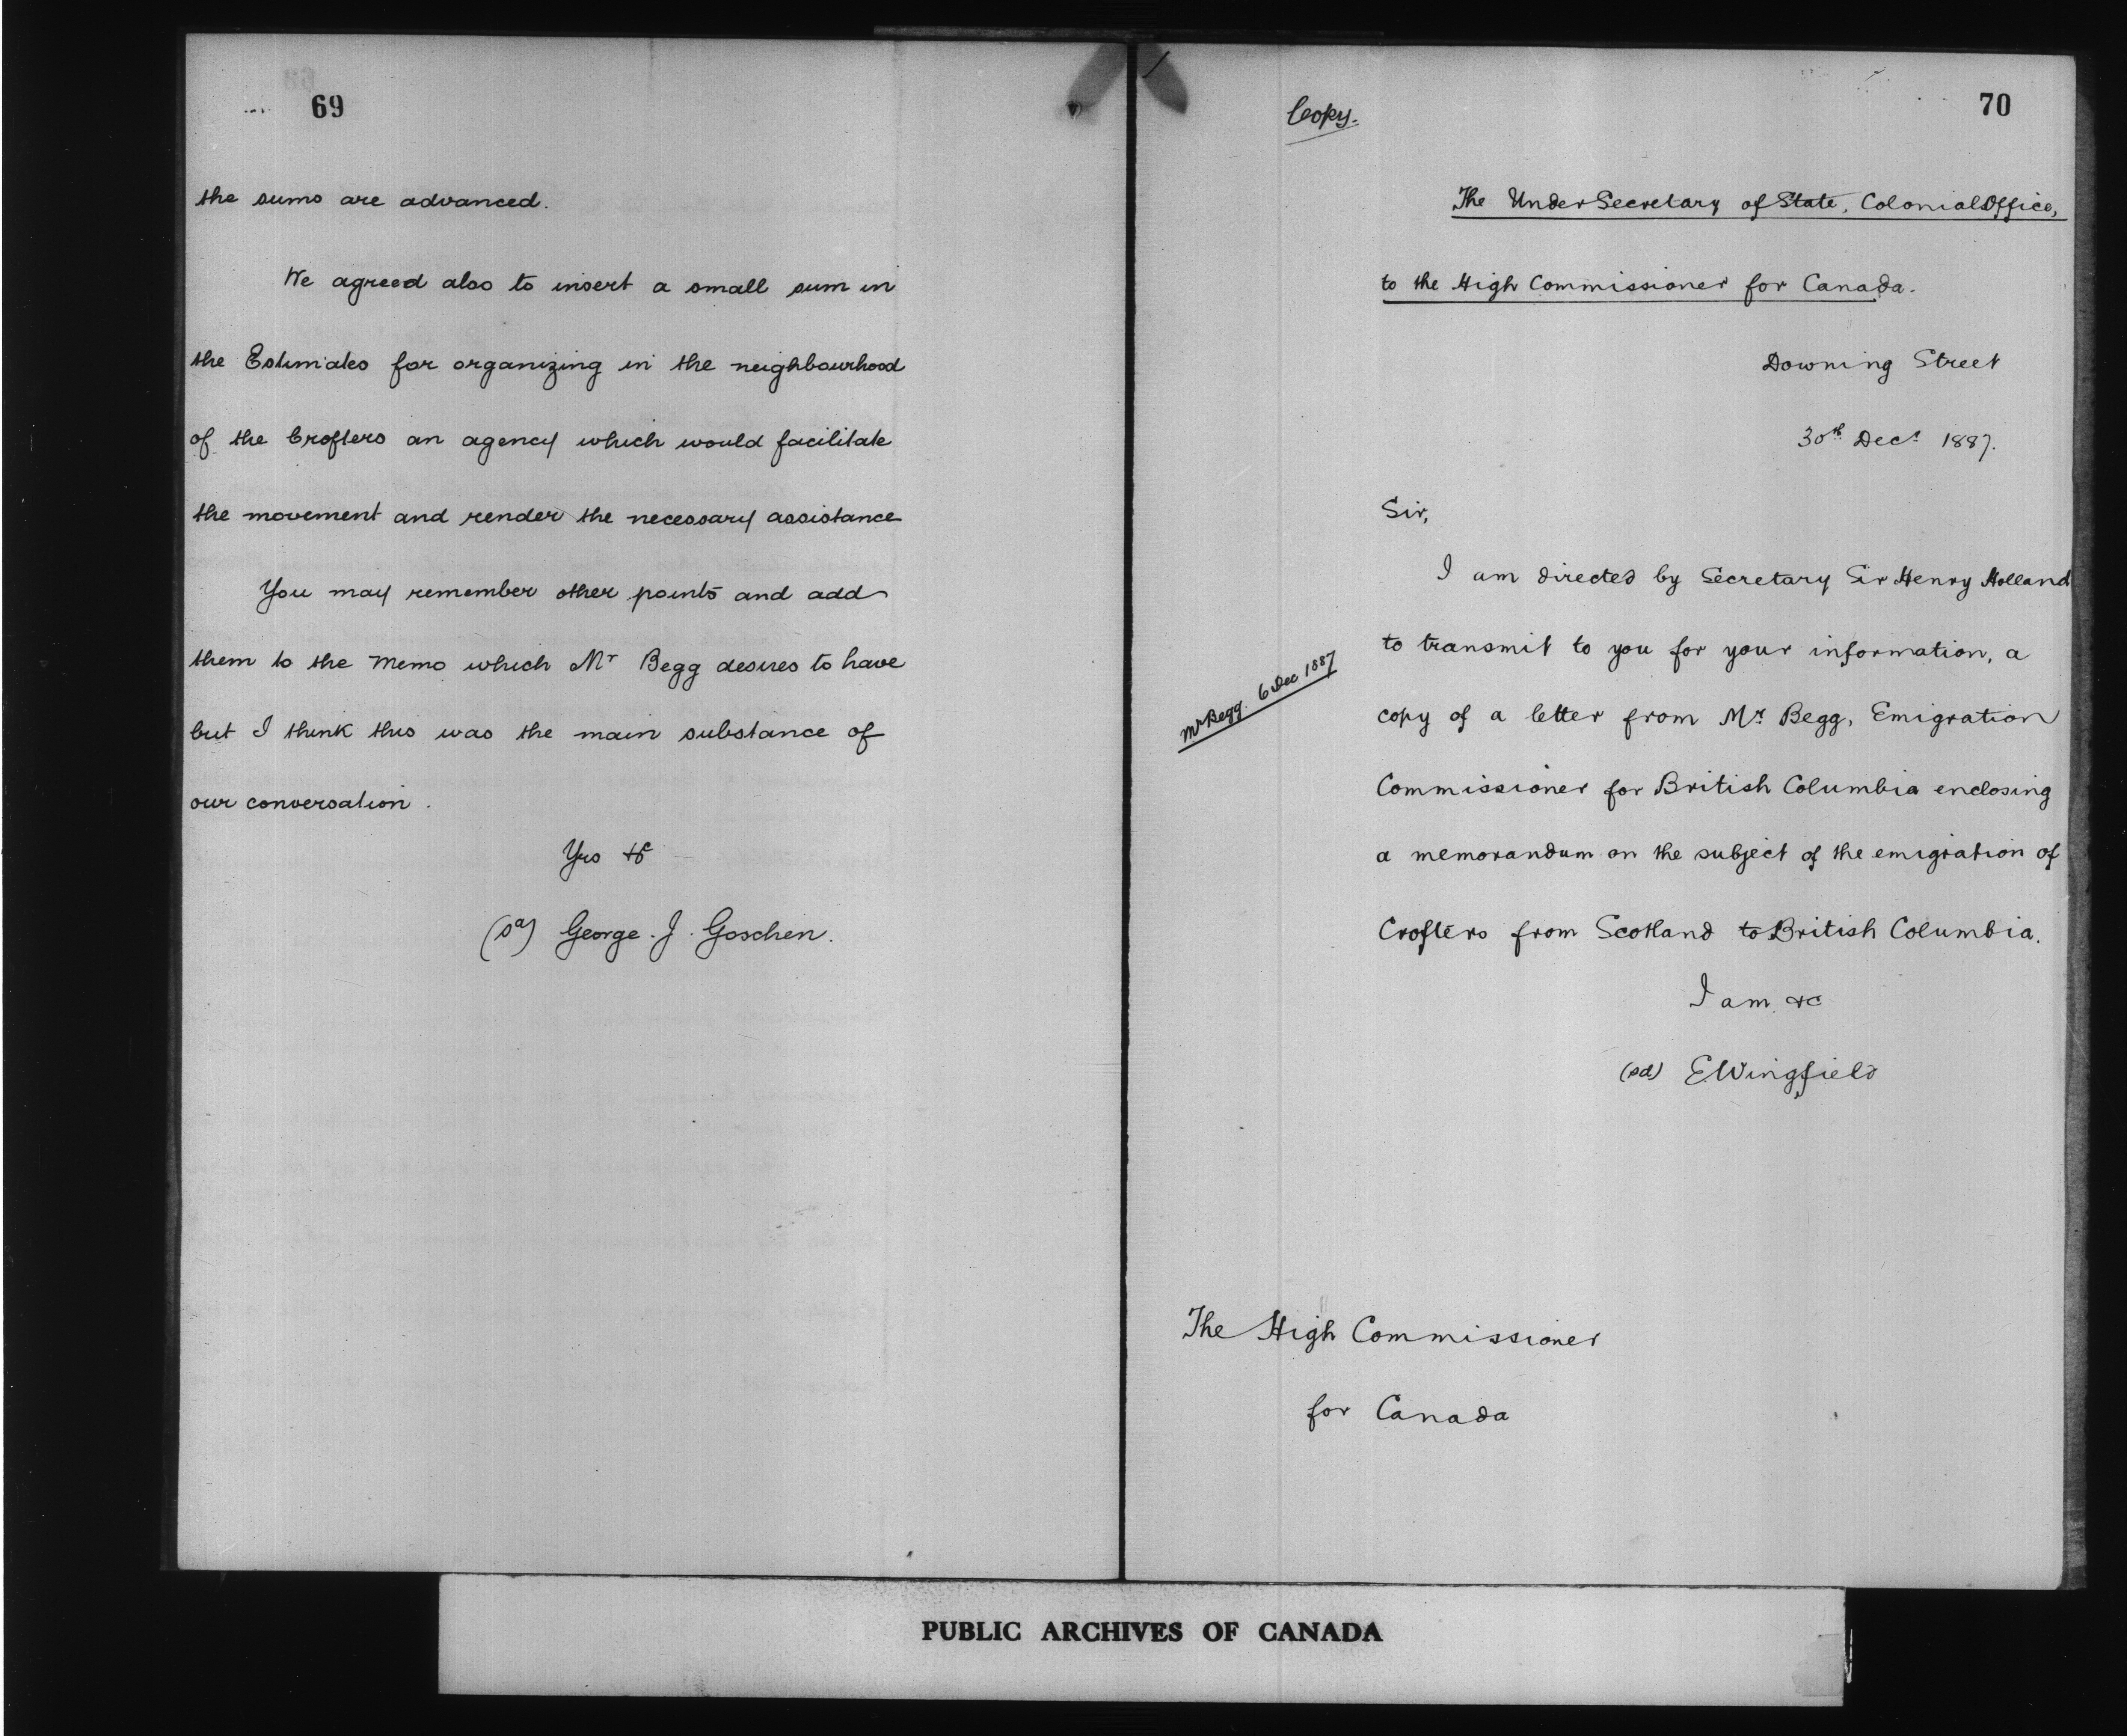 69
the sums are advanced.
We agreed also to insert a small sum in
the Estimates for organizing in the neighbourhood
of the Crofters an agency which would facilitate
the movement and render the necessary assistance
You may remember other points and add
them to the Memo which Mr Begg desires to have
but I think this was the main substance of
our conversation.
Yrs &c
(sd) George. J. Goschen.
70
Copy.
The Under Secretary of State, Colonial Office,
to the High Commissioner for Canada.
Downing Street
30th Decr 1887.
Sir,
I am directed by Secretary Sir Henry Holland
to transmit to you for your information, a
Mr Begg. 6 Dec 1887
copy of a letter from Mr Begg, Emigration
Commissioner for British Columbia enclosing
a memorandum on the subject of the emigration of
Crofters from Scotland to British Columbia.
I am &c
(sd) E Wingfield
The High Commissioner
for Canada
PUBLIC ARCHIVES OF CANADA